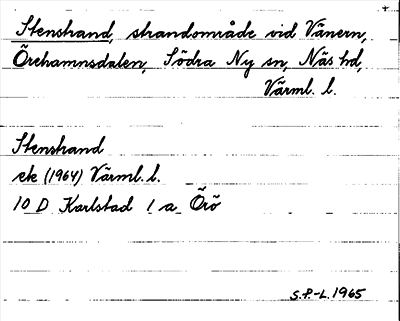 Stenstrand, strandområde vid Vänern,
Örehamnsdalen, Södra Ny sn, Näs hd,
Värml. l.
Stenstrand
ek (1964) Värml. l.
10 D Karlstad 1 a Örö
S.P.-L. 1965